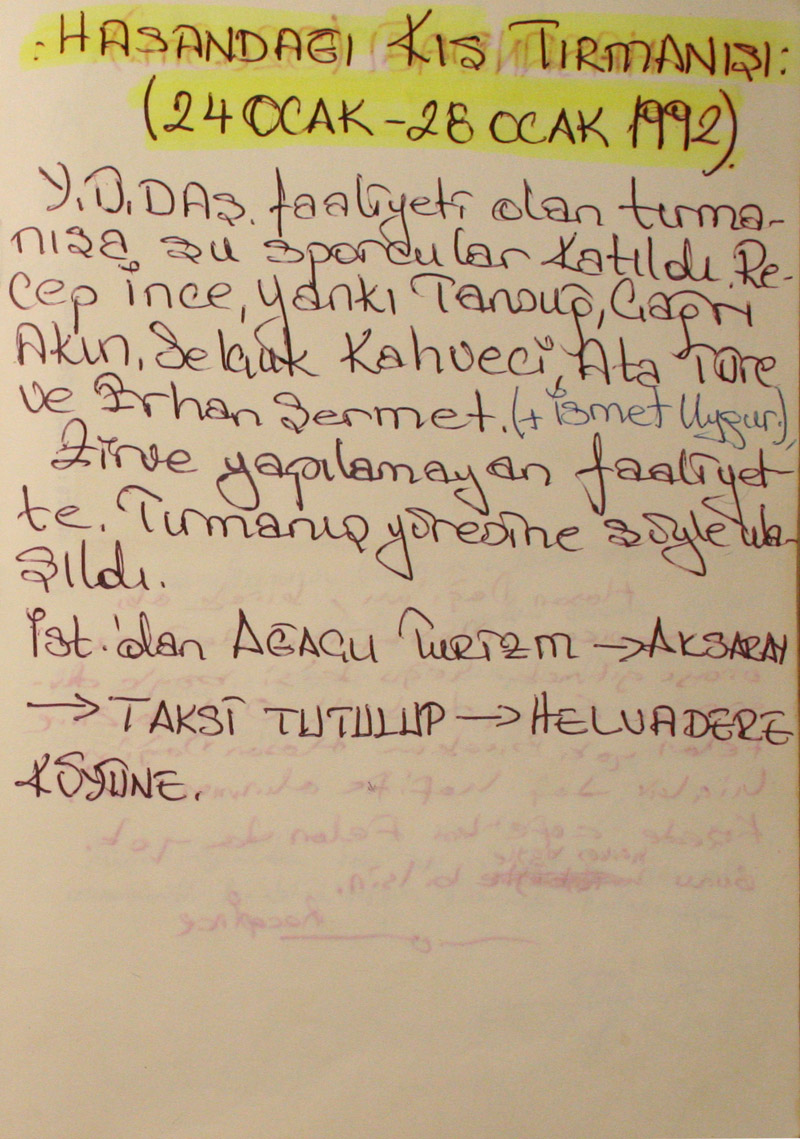 : HASANDAĞI KIŞ TIRMANIŞI:
(24 OCAK - 28 OCAK 1992).
Y.Ü.DAŞ. faaliyeti olan tırma-
nışa, şu sporcular katıldı. Re-
cep İnce, Yankı Tansuğ, Çağrı
Akın, Selçuk Kahveci, Ata Türe
ve Erhan Sermet. (+ İsmet Uygur.)
Zirve yapılamayan faaliyet-
te. Tırmanış yöresine şöyle ula-
şıldı.
İst.'dan AĞAÇLI TURİZM → AKSARAY
→ TAKSİ TUTULUP → HELVADERE
KÖYÜNE.